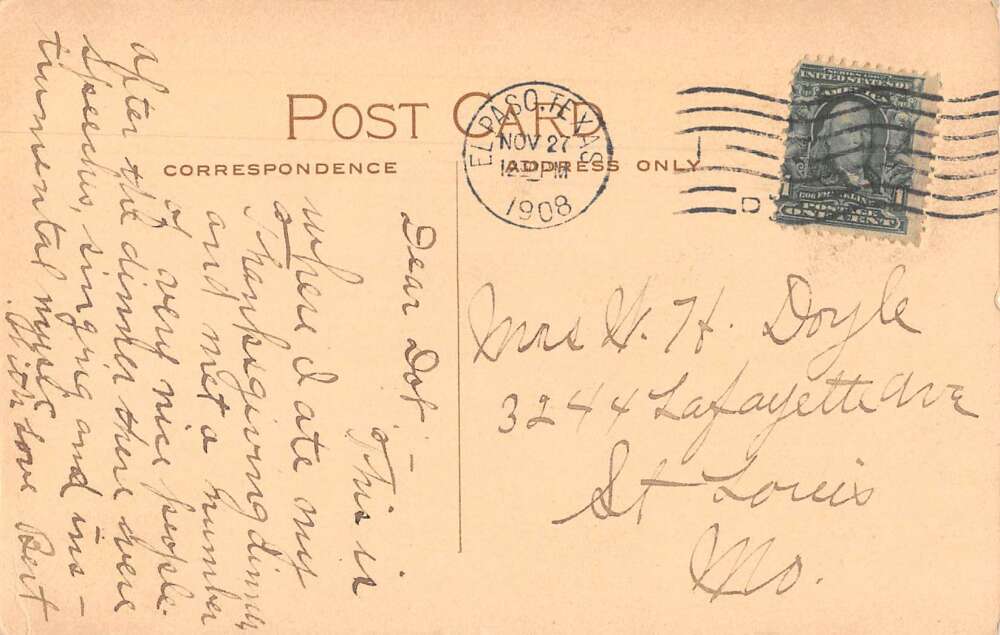 POST CARD
CORRESPONDENCE
ADDRESS ONLY
EL PASO, TEXAS
NOV 27
1908
D
SERIES 1902
UNITED STATES OF
AMERICA
FRANKLIN
POSTAGE
ONE CENT
Dear Dot –
This is
where I ate my
Thanksgiving dinner
and met a number
of very nice people.
After the dinner there were
Speeches, singing and ins–
trumental music
With love Bert
Mrs W. H. Doyle
3244 Lafayette Ave
St Louis
Mo.